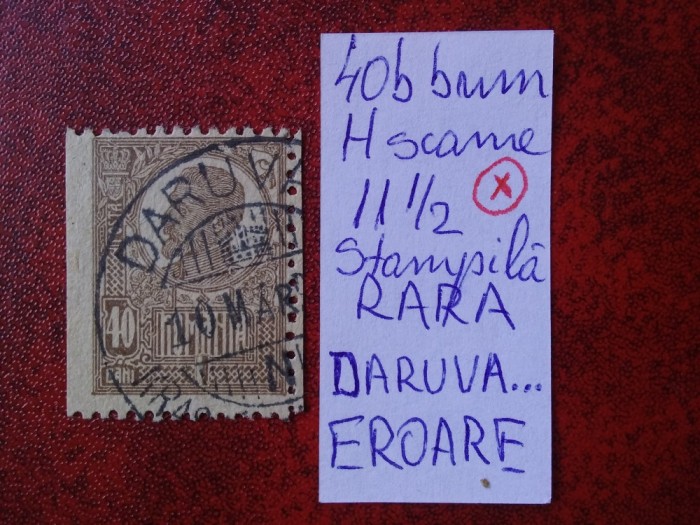 DARUVA
40
10 MAR
40b brun
H scame
11 1/2
x
Stampilă
RARA
DARUVA...
EROARE